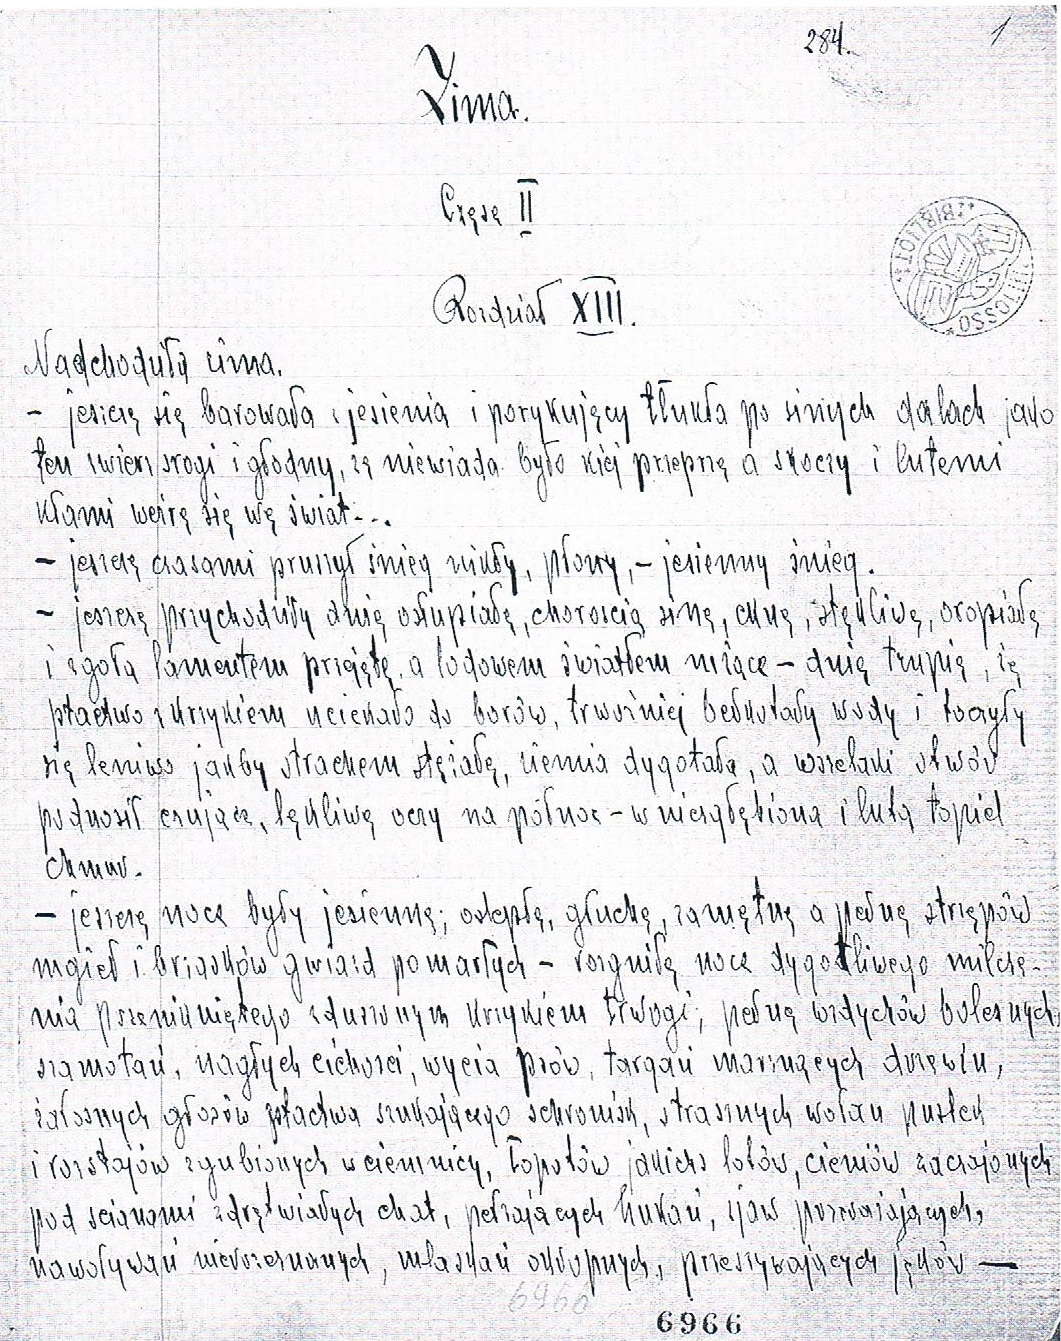 284. 1
Zima.
Część II
Rozdział XIII.
BIBLIOT OSSOLI
Nadchodziła zima.
– jeszcze się barowała z jesienią i porykujący tłukła po sinych dalach jako
ten zwierz srogi i głodny, że niewiada było kiej przeprze a skoczy i lutemi
kłami weźre się we świat...
– jeszcze czasami pruszył śnieg nikły, płowy, – jesienny śnieg.
– jeszcze przychodziły dnie osłupiałe, chorością sine, ckne, stękliwe, oropiałe
i zgoła lamentem przejęte, a lodowem światłem mżące – dnie trupie, że
ptactwo z krzykiem uciekało do borów, trwożniej bełkotały wody i toczyły
się leniwo jakby strachem stężałe, ziemia dygotała, a wszelaki stwór
podnosił czujące, lękliwe oczy na północ – w niezgłębioną i lutą topiel
chmur.
– jeszcze noce były jesienne; oślepłe, głuche, zamętne a pełne strzępów
mgieł i brzasków gwiazd pomarłych – rozgniłe noce dygotliwego milcze-
nia przenikniętego zduszonym krzykiem trwogi; pełne wzdychów bolesnych,
szamotań, nagłych cichości, wycia psów, targań marznących drzewin,
żałosnych głosów ptactwa szukającego schronisk, strasznych wołań pustek
i rozstajów zgubionych w ciemnicy, łopotów jakichs lotów, cieniów zaczajonych
pod ścianami zdrętwiałych chat, pełzających hukań, zjaw przerażających,
nawoływań nierozeznanych, mlaskań okropnych, przeszywających jęków –
6960
6966